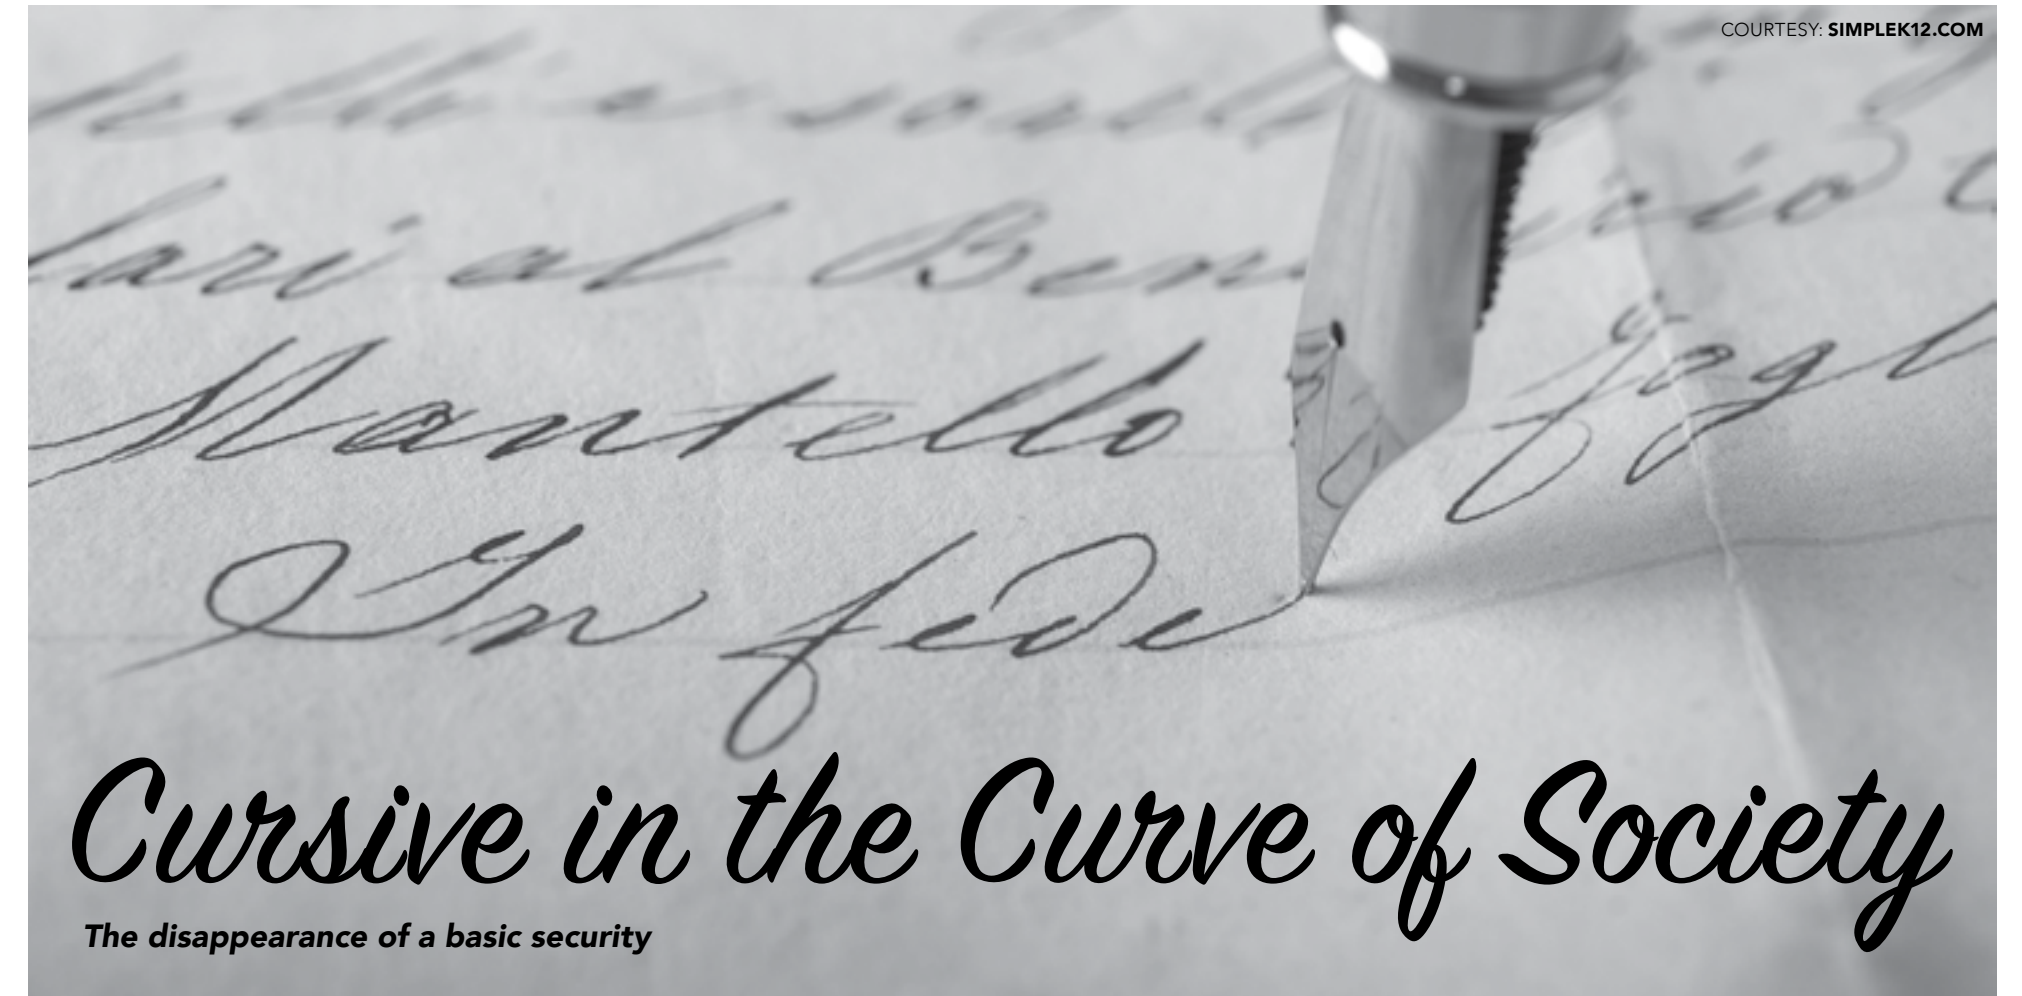 COURTESY: SIMPLEK12.COM
lari al Ben
Mantello
In fede
Cursive in the Curve of Society
The disappearance of a basic security